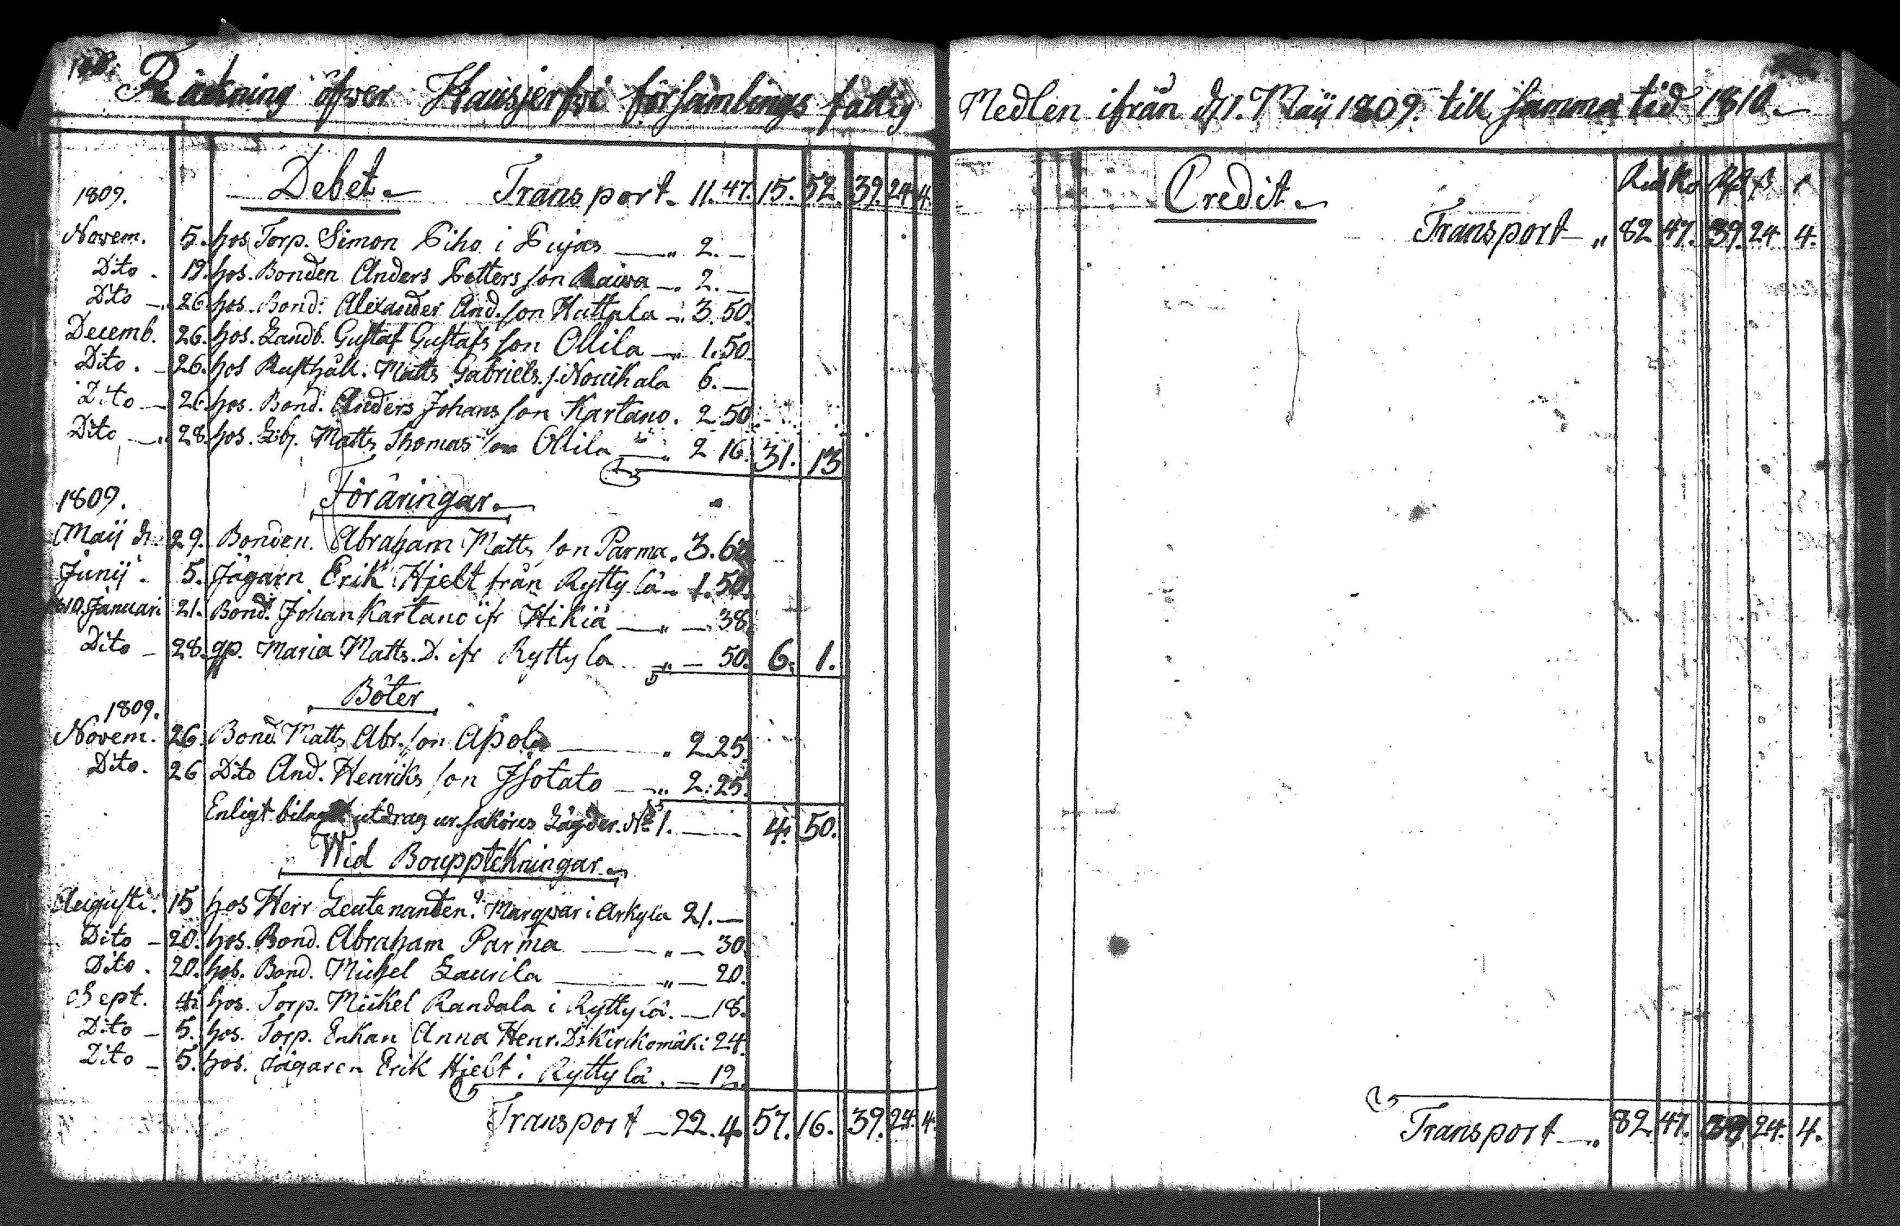 Räckning öfver Hausjerfvi församlings fattig
Debet. Transport. 11.47. 15. 52. 39. 24. 4.
1809.
Novem. 5. hos Torp. Simon Piho i Pujas — " 2. —
Dito . 19. hos. Bonden Anders Petters son Raiva —. 2. —
Dito —. 26. hos. Bond: Alexander And. son Huttala —. 3.50.
Decemb. 26. hos. Landb. Gustaf Gustafs son Ollila — 1.50.
Dito . — 26. hos Rusthåll. Matts Gabriels. s. Nouikala 6. —
Dito — 26. hos. Bond. Anders Johans son Kartano. 2.50.
Dito —. 28. hos. Lbj. Matts Thomas son Ollila — 2 16. 31. 13
Föräringar.
1809.
Maij d. 29. Bonden. Abraham Matts son Parma. 3.63
Junij . 5. Jägarn Erik Hjelt från Ryttylä — 1.50.
1810. Januari 21. Bond. Johan Kartano ifr Hikiä — " — 38.
Dito — 28. qp. Maria Matts. D. ifr Ryttyla — 50. 6. 1.
Böter
1809.
Novem. 26. Bond. Matts Abr. son Apola — . 2.25.
Dito. 26 Dito And. Henriks son Isotalo — " 2.25.
Enligt utdrag ur sakören Lägder. No 1. — 4. 50.
Wid Bouppteckningar.
Augusti. 15 hos Herr Leutenanten. Marqvar i Arkyla 21. —
Dito — 20. hos. Bond. Abraham Parma — " — 30.
Dito . 20. hos. Bond. Mickel Laurila — " — 20.
Sept. 4. hos. Torp. Mickel Randala i Ryttylä. — 18.
Dito — 5. hos. Torp. Enkan Anna Henr. Ds Kirckomäki 24.
Dito — 5. hos. Jägaren Erik Hjelt i Ryttylä. — 12.
Transport — 22. 4. 57. 16. 39. 24. 4.
Medlen ifrån d. 1. Maij 1809. till samma tid 1810. —
Credit.
Rub Ko Rd ß
Transport — " 82. 47. 39. 24. 4.
Transport — " 82. 47. 39 24. 4.